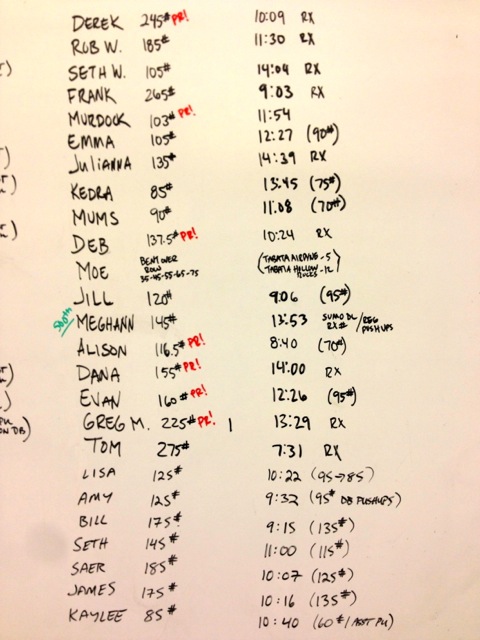 DEREK 245# PR! 10:09 RX
ROB W. 185# 11:30 RX
SETH W. 105# 14:04 RX
FRANK 265# 9:03 RX
MURDOCK 103# PR! 11:54
EMMA 105# 12:27 (90#)
JULIANNA 135# 14:39 RX
KEDRA 85# 13:45 (75#)
MUMS 90# 11:08 (70#)
DEB 137.5# PR! 10:24 RX
MOE BENT OVER ROW 35-45-55-65-75 (TABATA AIRDYNE - 5 TABATA HOLLOW ROCKS - 12)
JILL 120# 9:06 (95#)
500th MEGHANN 145# 13:53 SUMO DL RX# / REG PUSHUPS
ALISON 116.5# PR! 8:40 (70#)
DANA 155# PR! 14:00 RX
EVAN 160# PR! 12:26 (95#)
GREG M. 225# PR! 13:29 RX
ON DB)
TOM 275# 7:31 RX
LISA 125# 10:22 (95→85)
AMY 125# 9:32 (95# DB PUSHUPS)
BILL 175# 9:15 (135#)
SETH 145# 11:00 (115#)
SAER 185# 10:07 (125#)
JAMES 175# 10:16 (135#)
KAYLEE 85# 10:40 (60#/ASST PU)